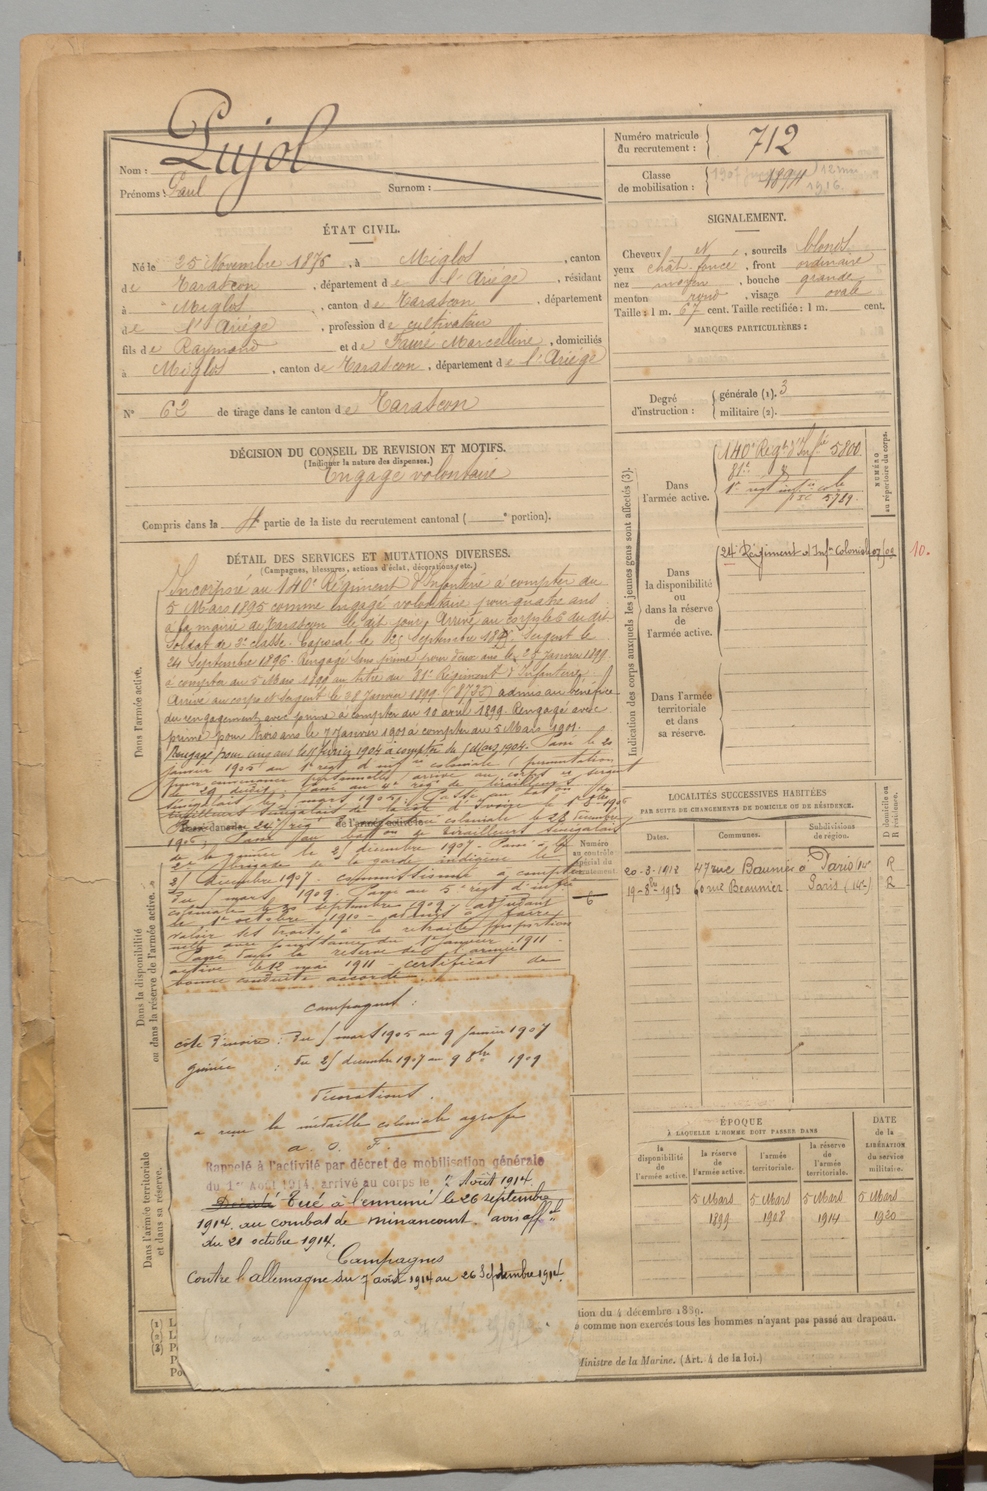 Nom : Pujol
Prénoms : Paul Surnom :
Numéro matricule du recrutement : 712
Classe de mobilisation : 1894
ÉTAT CIVIL.
Né le 25 Novembre 1875, à Miglos, canton
de Tarascon, département de l'Ariège, résidant
à Miglos, canton de Tarascon, département
de l'Ariège, profession de cultivateur
fils de Raymond et de Faure Marcelline, domiciliés
à Miglos, canton de Tarascon, département de l'Ariège
N° 62 de tirage dans le canton de Tarascon
SIGNALEMENT.
Cheveux N, sourcils blonds
yeux chât. foncé, front ordinaire
nez moyen, bouche grande
menton rond, visage ovale
Taille : 1 m. 67 cent. Taille rectifiée : 1 m. cent.
MARQUES PARTICULIÈRES :
Degré d'instruction : générale (1). 3
militaire (2).
DÉCISION DU CONSEIL DE REVISION ET MOTIFS.
(Indiquer la nature des dispenses.)
Engagé volontaire
Compris dans la 4e partie de la liste du recrutement cantonal ( e portion).
DÉTAIL DES SERVICES ET MUTATIONS DIVERSES.
(Campagnes, blessures, actions d'éclat, décorations, etc.)
Dans l'armée active.
Incorporé au 140e Régiment d'Infanterie à compter du
5 Mars 1895 comme engagé volontaire pour quatre ans
à la mairie de Tarascon le dit jour. Arrivé au corps le 6 du dit
Soldat de 2e classe. Caporal le Septembre Sergent le
24 Septembre 1896. Rengagé pour deux ans le 28 Janvier 1899
à compter du 5 Mars 1899 au titre du 81e Régiment d'Infanterie
Arrivé au corps et sergent le 28 Janvier 1899 admis au bénéfice
du rengagement avec prime à compter du 10 avril 1899. Rengagé avec
prime pour trois ans le 7 Janvier 1901 à compter du 5 Mars 1901.
Rengagé pour cinq ans le février 1904 à compter du 5 Mars 1904. Passé le 20
janvier 1905 au 1e régt d'infie coloniale (permutation
pour convenance personnelle) arrivé au corps et sergent
le 29 dudit; Passé au 4e régt de tirailleurs
sénégalais le mars 1905; Passé au baton de
tirailleurs sénégalais de la côte d'Ivoire le 1er
coloniale le 25 décembre
Passé au baton de tirailleurs sénégalais
de la guinée le 25 décembre 1907. Passé à la
brigade de la garde indigène le
25 décembre 1907. Commissionné à compter
du mars 1909. Passé au 5e régt d'infie
coloniale le 30 septembre 1909. adjudant
le 1er octobre 1910 - admis à faire
valoir ses droits à la retraite proportion
nelle avec jouissance du 1er janvier 1911 -
Passé dans la réserve de l'armée
active le 12 mai 1911 - certificat de
bonne conduite accordé.
Dans la disponibilité ou dans la réserve de l'armée active.
Campagnes :
côte d'ivoire : Du 5 mars 1905 au 9 janvier 1907
guinée : Du 25 décembre 1907 au 9 8bre 1909
Décorations.
a reçu la médaille coloniale agrafe
a. O. F.
Rappelé à l'activité par décret de mobilisation générale
du 1er Août 1914, arrivé au corps le 7 Août 1914.
Décédé Tué à l'ennemi le 26 septembre
1914, au combat de minancourt. avis offel
du 21 octobre 1914.
Campagnes
Contre l'allemagne du 7 août 1914 au 26 Septembre 1914.
Dans l'armée territoriale et dans sa réserve.
Indication des corps auxquels les jeunes gens sont affectés (3).
NUMÉRO au répertoire du corps.
Dans l'armée active.
140e Régt d'Infie 5800
81e
1er régt infie cole 5789
Dans la disponibilité ou dans la réserve de l'armée active.
24 Régiment d'Infie Coloniale 07/02
10.
Dans l'armée territoriale et dans sa réserve.
LOCALITÉS SUCCESSIVES HABITÉES
PAR SUITE DE CHANGEMENTS DE DOMICILE OU DE RÉSIDENCE.
Dates. Communes. Subdivisions de région. D domicile ou R résidence.
20-3-1912 47 rue Beaunier à Paris (14e) R
19-8bre-1913 60 rue Beaunier Paris (14e) R
Numéro au contrôle spécial du recrutement.
6
ÉPOQUE
À LAQUELLE L'HOMME DOIT PASSER DANS
la disponibilité de l'armée active. la réserve de l'armée active. l'armée territoriale. la réserve de l'armée territoriale.
DATE de la LIBÉRATION du service militaire.
5 Mars 1899 5 Mars 1908 5 Mars 1914 5 Mars 1920
tion du 4 décembre 1889.
comme non exercés tous les hommes n'ayant pas passé au drapeau.
Ministre de la Marine. (Art. 4 de la loi.)